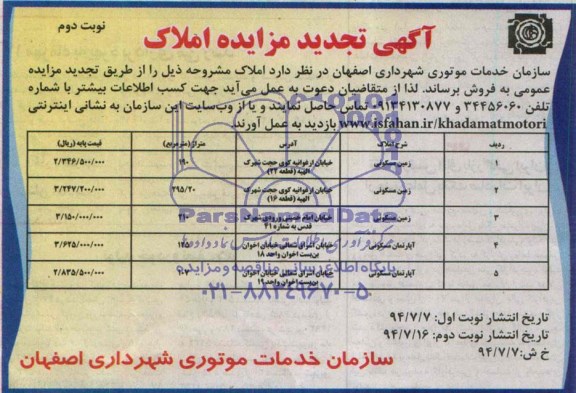 نوبت دوم
آگهی تجدید مزایده املاک
سازمان خدمات موتوری شهرداری اصفهان در نظر دارد املاک مشروحه ذیل را از طریق تجدید مزایده
عمومی به فروش برساند. لذا از متقاضیان دعوت به عمل می‌آید جهت کسب اطلاعات بیشتر با شماره
تلفن ۳۴۴۵۶۰۶۰ و ۰۹۱۳۴۱۳۰۸۷۷ تماس حاصل نمایند و یا از وب‌سایت این سازمان به نشانی اینترنتی
www.isfahan.ir/khadamatmotori بازدید به عمل آورند.
ردیف شرح املاک آدرس متراژ (مترمربع) قیمت پایه (ریال)
۱ زمین مسکونی خیابان ارغوانیه کوی حجت شهرک الهیه (قطعه ۲۲) ۱۹۰ ۲/۳۴۶/۵۰۰/۰۰۰
۲ زمین مسکونی خیابان ارغوانیه کوی حجت شهرک الهیه (قطعه ۱۶) ۲۹۵/۲۰ ۳/۲۴۷/۲۰۰/۰۰۰
۳ زمین مسکونی خیابان امام خمینی ورودی شهرک قدس به شماره ۴۱ ۳/۱۵۰/۰۰۰/۰۰۰
۴ آپارتمان مسکونی خیابان اشراق شمالی خیابان اخوان بن‌بست اخوان واحد ۱۸ ۳/۶۲۵/۰۰۰/۰۰۰
۵ آپارتمان مسکونی خیابان اشراق شمالی خیابان اخوان بن‌بست اخوان واحد ۱۹ ۱۰۷ ۲/۸۳۵/۵۰۰/۰۰۰
ParsNamadData
پایگاه اطلاع رسانی مناقصه و مزایده
۰۲۱-۸۸۳۴۹۶۷۰-۵
تاریخ انتشار نوبت اول: ۹۴/۷/۷
تاریخ انتشار نوبت دوم: ۹۴/۷/۱۶
خ ش: ۹۴/۷/۷
سازمان خدمات موتوری شهرداری اصفهان